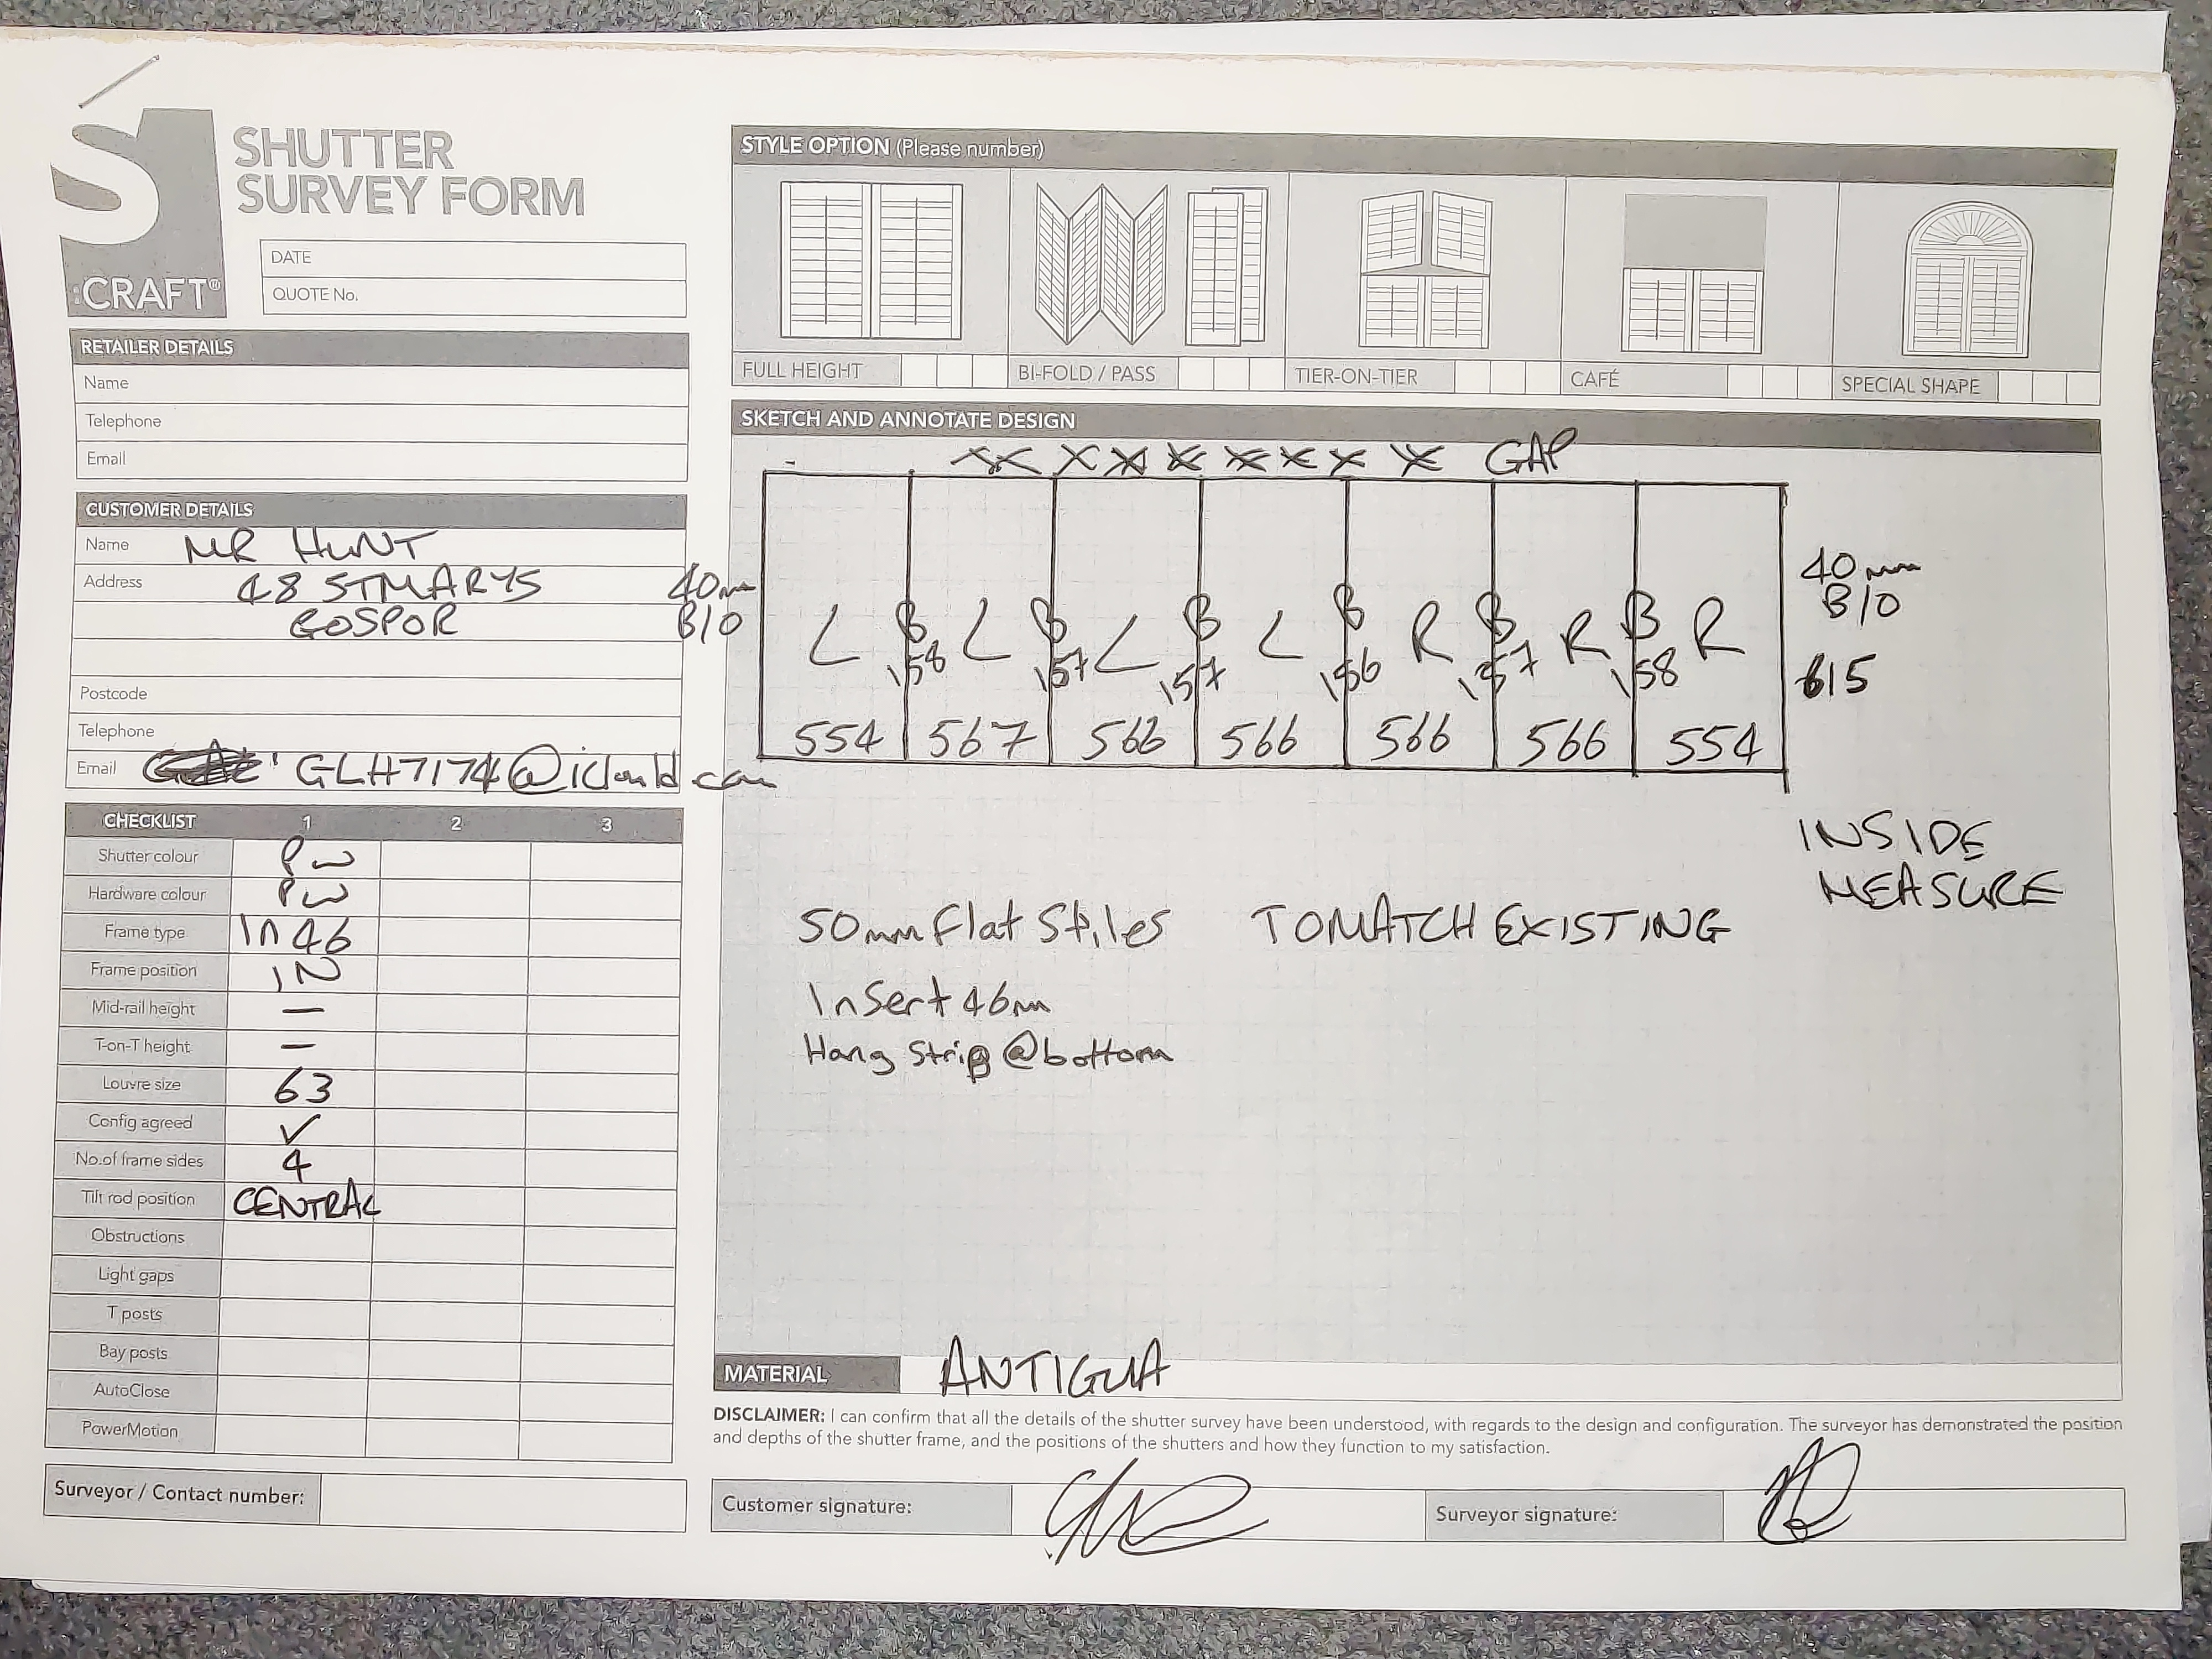 S:CRAFT®
SHUTTER
SURVEY FORM
DATE
QUOTE No.
RETAILER DETAILS
Name
Telephone
Email
CUSTOMER DETAILS
Name MR HUNT
Address 48 ST MARYS
GOSPOR
Postcode
Telephone
Email GLH7174@icloud.com
CHECKLIST 1 2 3
Shutter colour PW
Hardware colour PW
Frame type In 46
Frame position IN
Mid-rail height —
T-on-T height —
Louvre size 63
Config agreed ✓
No.of frame sides 4
Tilt rod position CENTRAL
Obstructions
Light gaps
T posts
Bay posts
AutoClose
PowerMotion
Surveyor / Contact number:
STYLE OPTION (Please number)
FULL HEIGHT BI-FOLD / PASS TIER-ON-TIER CAFÉ SPECIAL SHAPE
SKETCH AND ANNOTATE DESIGN
XX X X X X X X X GAP
40mm
B/O
L B L B L B L B R B R B R
158 157 157 156 157 158
554 567 566 566 566 566 554
40mm
B/O
615
INSIDE
MEASURE
50mm Flat Stiles TO MATCH EXISTING
Insert 46m
Hang Strip @ bottom
MATERIAL ANTIGUA
DISCLAIMER: I can confirm that all the details of the shutter survey have been understood, with regards to the design and configuration. The surveyor has demonstrated the position
and depths of the shutter frame, and the positions of the shutters and how they function to my satisfaction.
Customer signature:
Surveyor signature: